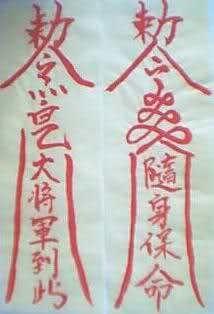 敕令隨身保命
敕令大将軍到此